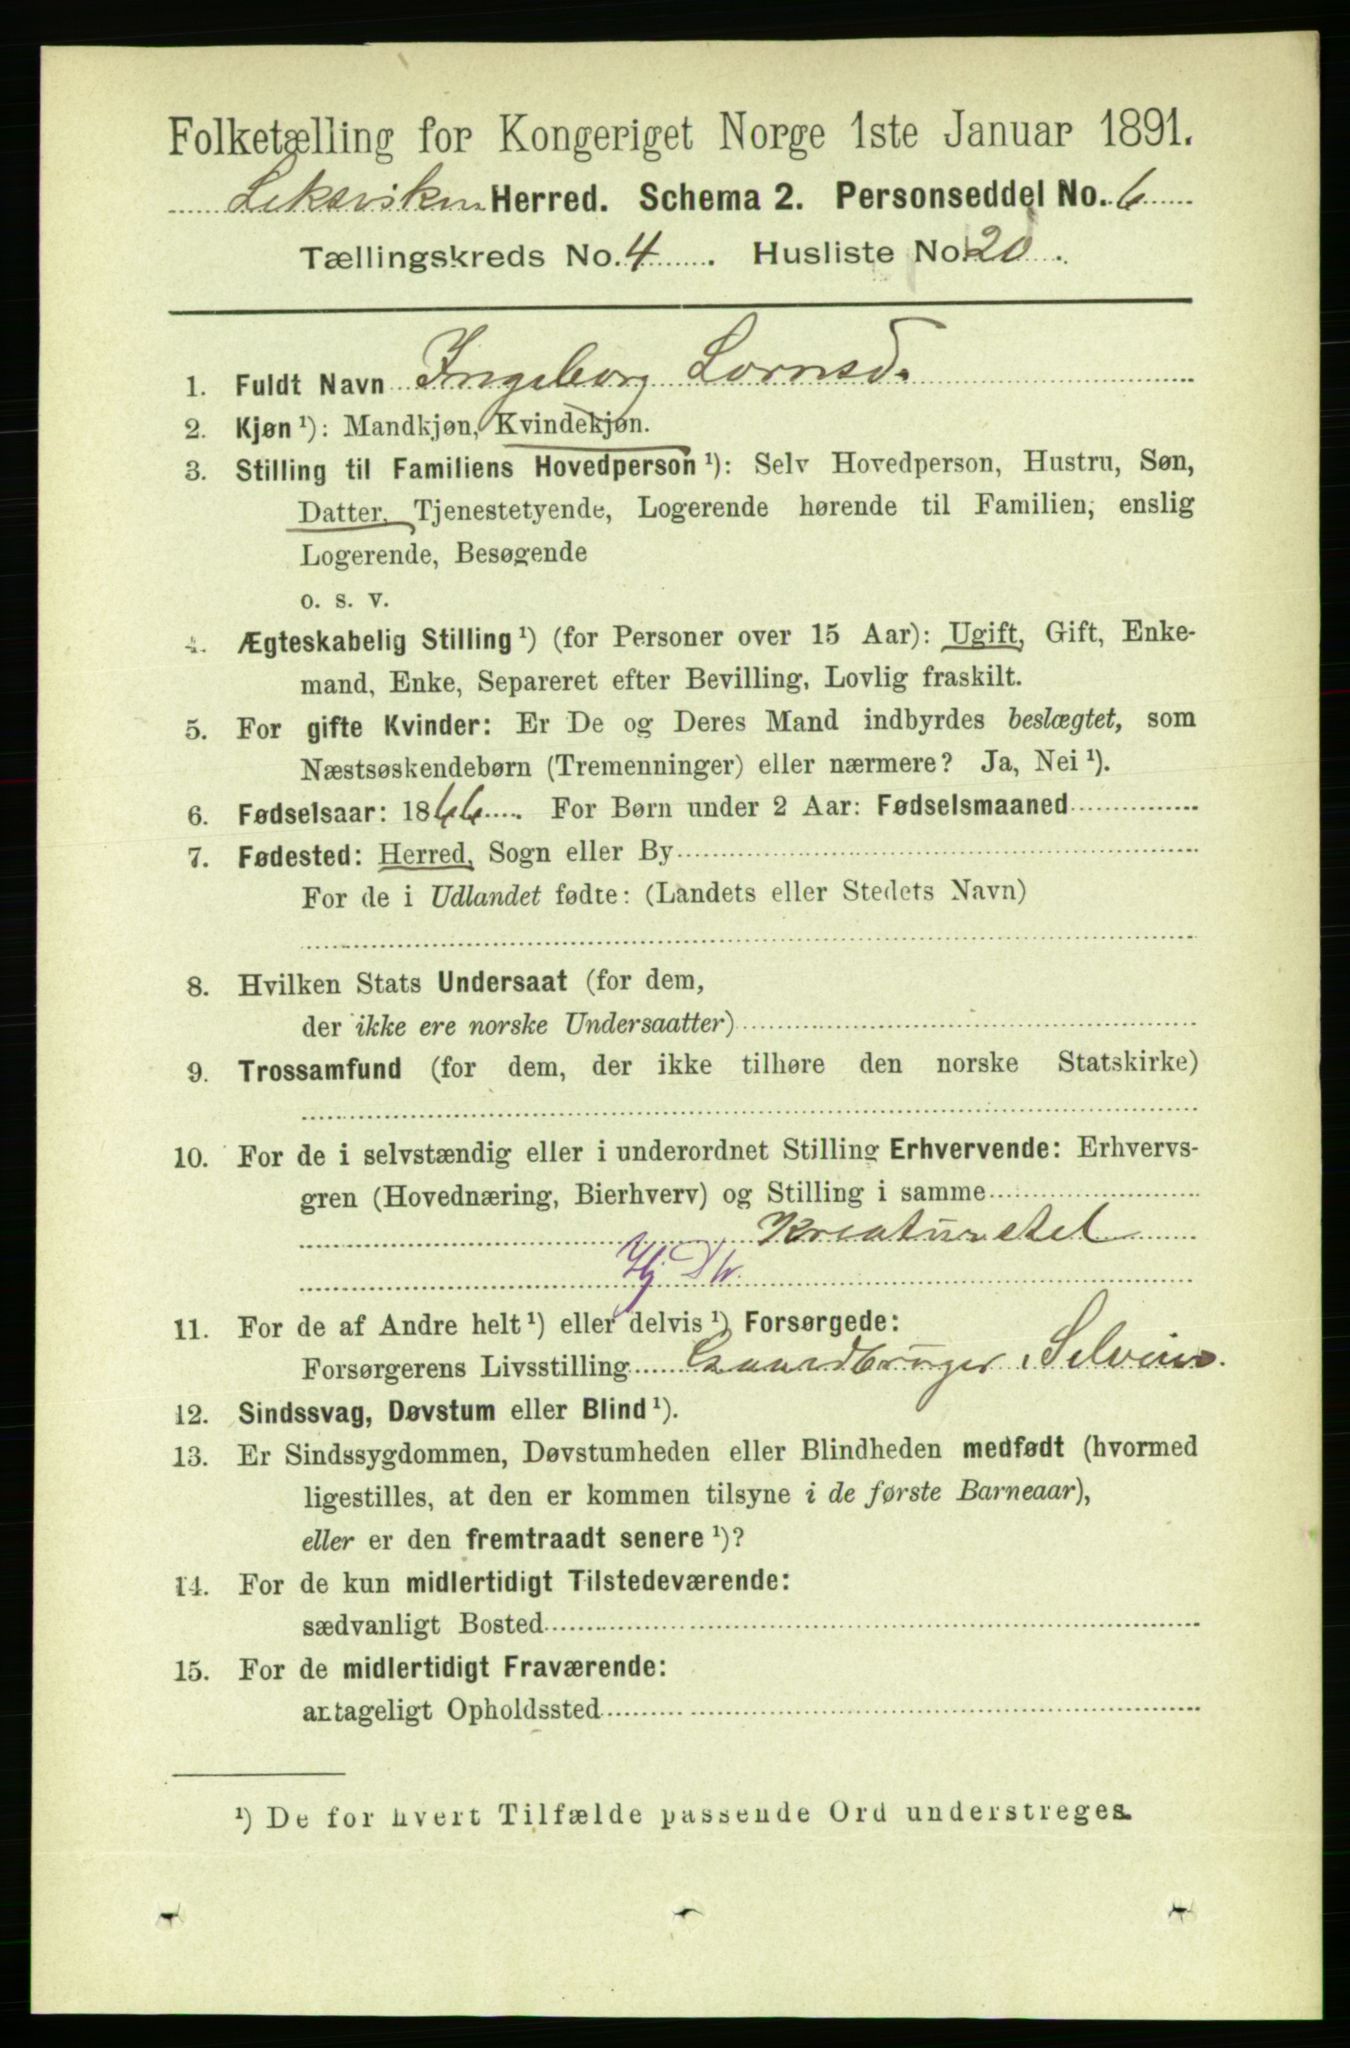 Folketælling for Kongeriget Norge 1ste Januar 1891.
Leksviken Herred. Schema 2. Personseddel No. 6
Tællingskreds No. 4. Husliste No. 20.
1. Fuldt Navn Ingeborg Lornsd.
2. Kjøn ¹): Mandkjøn, Kvindekjøn.
3. Stilling til Familiens Hovedperson ¹): Selv Hovedperson, Hustru, Søn,
Datter, Tjenestetyende, Logerende hørende til Familien, enslig
Logerende, Besøgende
o. s. v.
4. Ægteskabelig Stilling ¹) (for Personer over 15 Aar): Ugift, Gift, Enke-
mand, Enke, Separeret efter Bevilling, Lovlig fraskilt.
5. For gifte Kvinder: Er De og Deres Mand indbyrdes beslægtet, som
Næstsøskendebørn (Tremenninger) eller nærmere? Ja, Nei ¹).
6. Fødselsaar: 1866. For Børn under 2 Aar: Fødselsmaaned
7. Fødested: Herred, Sogn eller By
For de i Udlandet fødte: (Landets eller Stedets Navn)
8. Hvilken Stats Undersaat (for dem,
der ikke ere norske Undersaatter)
9. Trossamfund (for dem, der ikke tilhøre den norske Statskirke)
10. For de i selvstændig eller i underordnet Stilling Erhvervende: Erhvervs-
gren (Hovednæring, Bierhverv) og Stilling i samme
Kreaturstel
11. For de af Andre helt ¹) eller delvis ¹) Forsørgede:
Forsørgerens Livsstilling Gaardbruger, Selveier.
12. Sindssvag, Døvstum eller Blind ¹).
13. Er Sindssygdommen, Døvstumheden eller Blindheden medfødt (hvormed
ligestilles, at den er kommen tilsyne i de første Barneaar),
eller er den fremtraadt senere ¹)?
14. For de kun midlertidigt Tilstedeværende:
sædvanligt Bosted
15. For de midlertidigt Fraværende:
antageligt Opholdssted
¹) De for hvert Tilfælde passende Ord understreges.